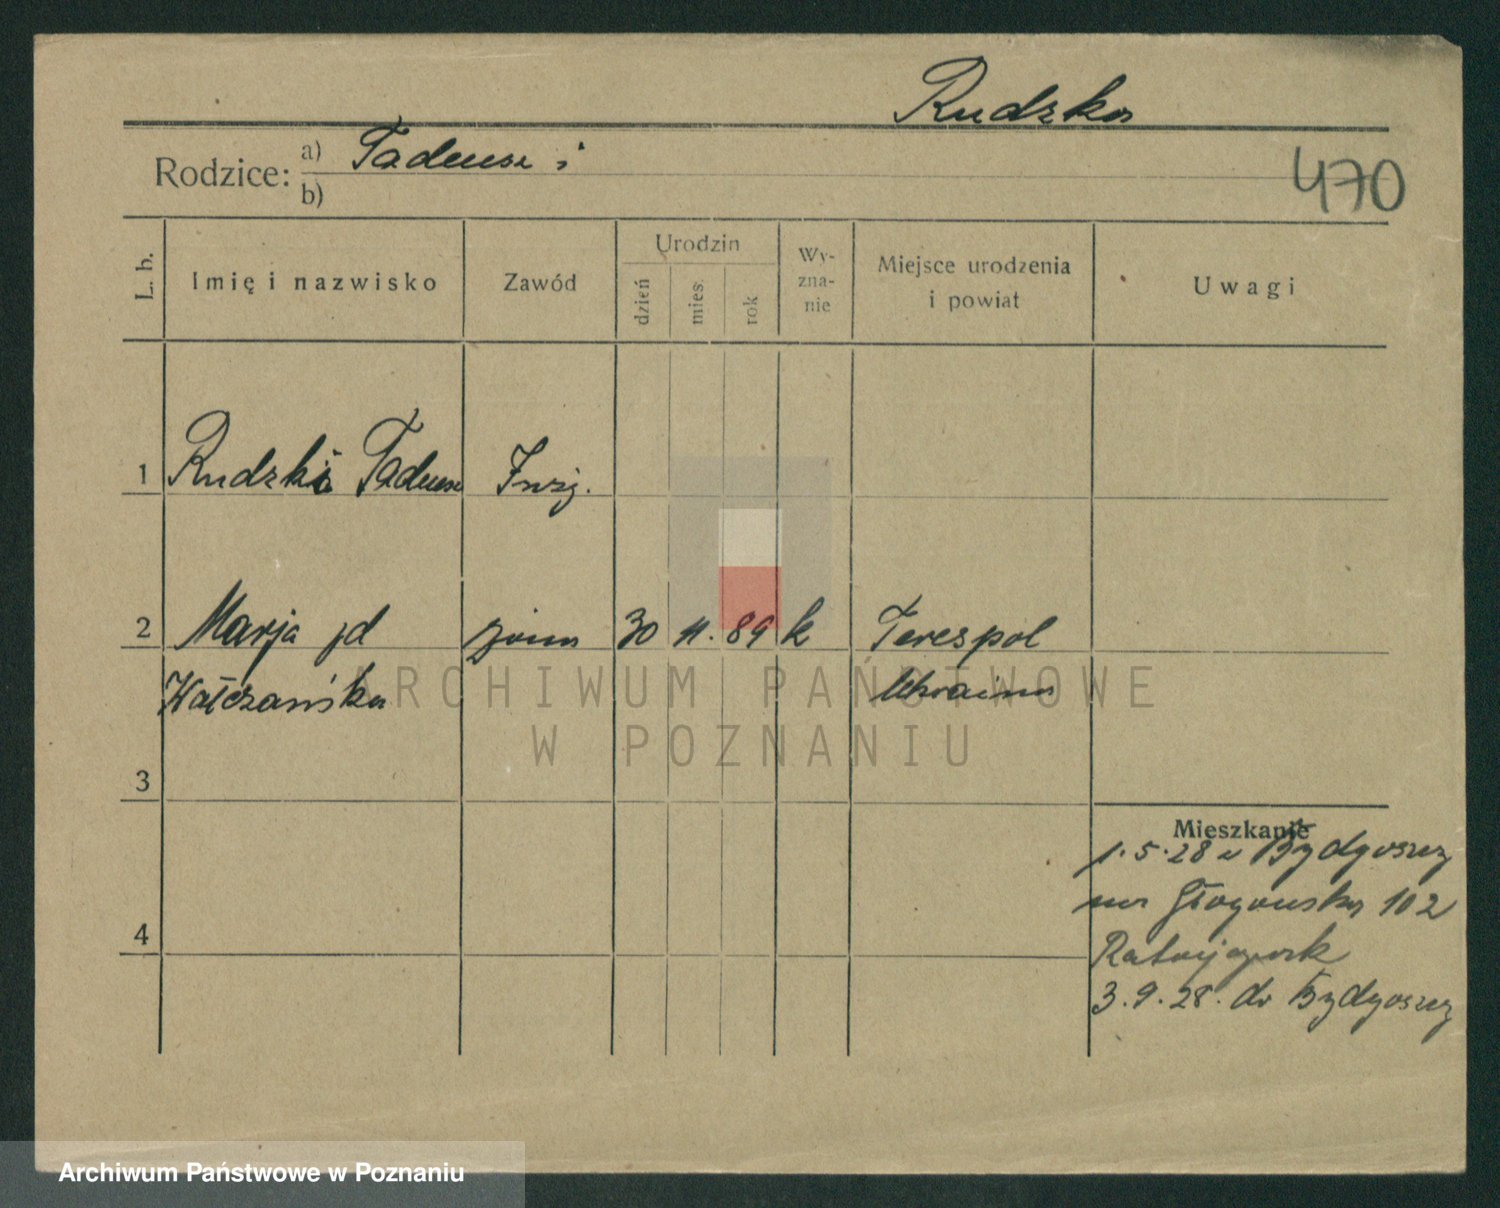 Rudzka
Rodzice: a) Tadeusz i
b)
470
L. b.
Imię i nazwisko
Zawód
Urodzin
dzień
mies.
rok
Wy-
zna-
nie
Miejsce urodzenia
i powiat
Uwagi
1 Rudzki Tadeusz Inż.
2 Marja zd żona 30 11. 89 k Terespol
Ukraina
3
Mieszkanie
1.5.28 z Bydgoszczy
na Głogowska 102
3.9.28. do Bydgoszczy
4
ARCHIWUM PAŃSTWOWE
W POZNANIU
Archiwum Państwowe w Poznaniu